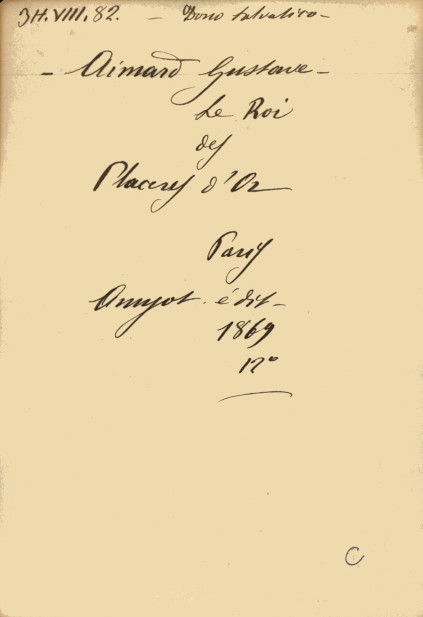 3H.VIII.82. - Dono Salvatico -
- Aimard Gustave -
Le Roi
des
Placers d'Or
Paris
Amyot. édit -
1869
12°
C